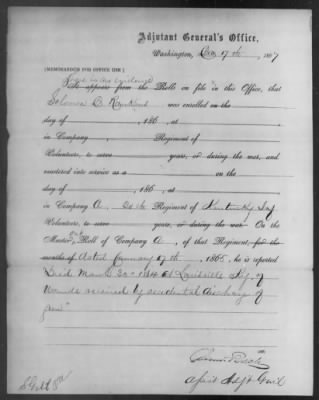 Adjutant General's Office,
Washington, Dec 17th, 1867
[MEMORANDUM FOR OFFICE USE.]
There is no evidence
It appears from the Rolls on file in this Office, that
Solomon C. was enrolled on the
day of , 186 , at
in Company , Regiment of
Volunteers, to serve years, or during the war, and
mustered into service as a on the
day of , 186 , at ,
in Company A, 20th Regiment of Kentucky Inf
Volunteers, to serve years, or during the war. On the
Muster Out Roll of Company A, of that Regiment, for the
months of dated January 17th, 1865, he is reported
"Died March 30th 1864 at Louisville Ky. of
wounds received by accidental discharge of
gun"
Asst Adjt Genl